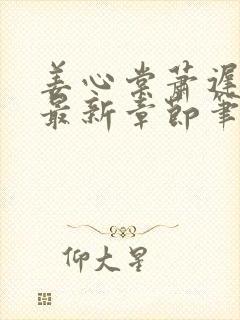 姜心棠萧遅
最新章節筆
仰大星